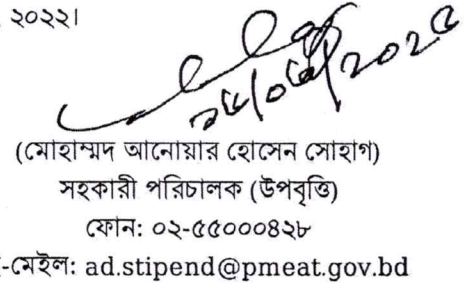 ২০২২।
২৫/০৫/২০২৫
(মোহাম্মদ আনোয়ার হোসেন সোহাগ)
সহকারী পরিচালক (উপবৃত্তি)
ফোন: ০২-৫৫০০০৪২৮
-মেইল: ad.stipend@pmeat.gov.bd